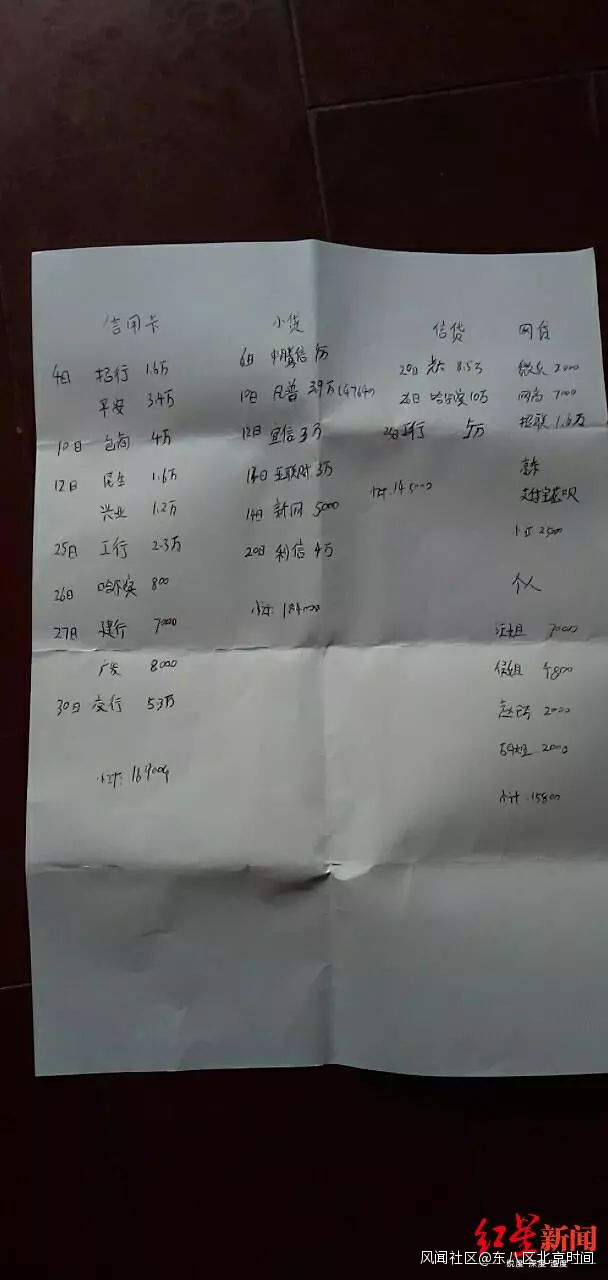 信用卡
4日 招行 1.6万
平安 3.4万
10日 包商 4万
12日 民生 1.6万
兴业 1.2万
25日 工行 2.3万
26日 哈尔滨 800
27日 建行 7000
广发 8000
30日 交行 5.3万
小计: 169004
小贷
6日 中腾信
10日 凡普 3.9万 (4764)
12日 宜信 3万
14日 3万
14日 新网 5000
20日 利信 4万
小计: 184000
信贷
20日 光大 8.5万
26日 哈尔滨 10万
工行 5万
小计: 145000
网贷
微众 2000
网商 7000
招联 1.6万
京东
支付宝花呗
小计 2500
个人
汪姐 7000
侯姐 4800
2000
2000
小计: 15800
红星新闻
锐度·深度·温度
风闻社区@东八区北京时间